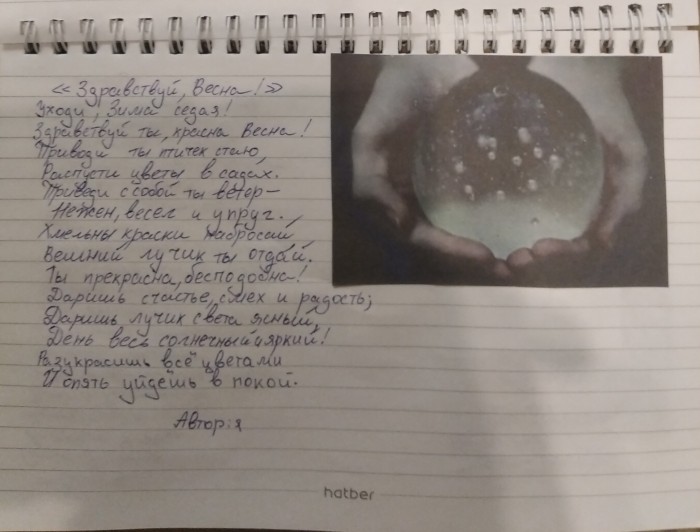 «Здравствуй, Весна!»
Уходи, Зима седая!
Здравствуй ты, красна Весна!
Приводи ты птичек стаю,
Распусти цветы в садах.
Приведи с собой ты ветер-
Нежен, весел и упруг.
Хмельны краски набросай,
Вешний лучик ты отдай.
Ты прекрасна, бесподобна!
Даришь счастье, смех и радость;
Даришь лучик света ясный,
День весь солнечный и яркий!
Разукрасишь всё цветами
И опять уйдёшь в покой.
Автор: я
hatber